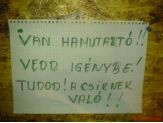 VAN HAMUTARTÓ!!
VEDD IGÉNYBE!
TUDOD! A CSIKNEK
VALÓ!!